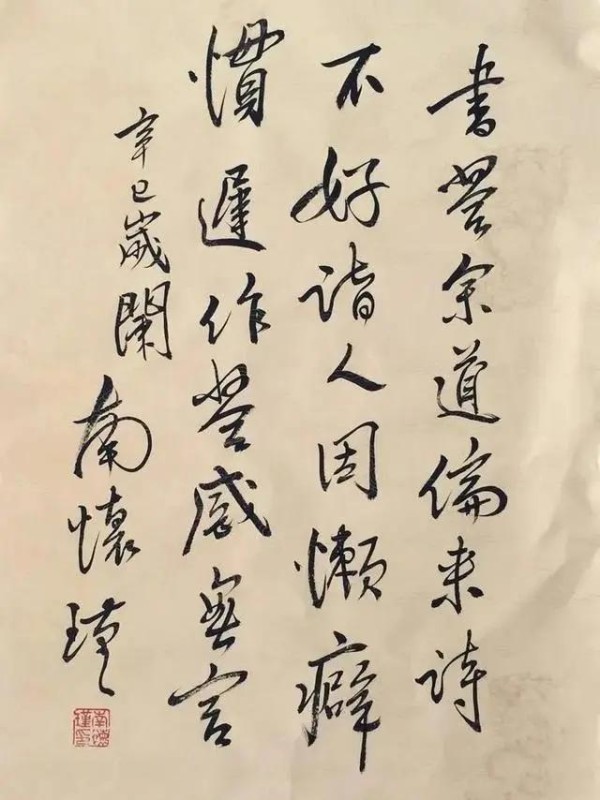 書答余道偏来詩
不好詣人因懶癖
慣遲作答感無言
辛巳歲闌
南懷瑾
南懷瑾印